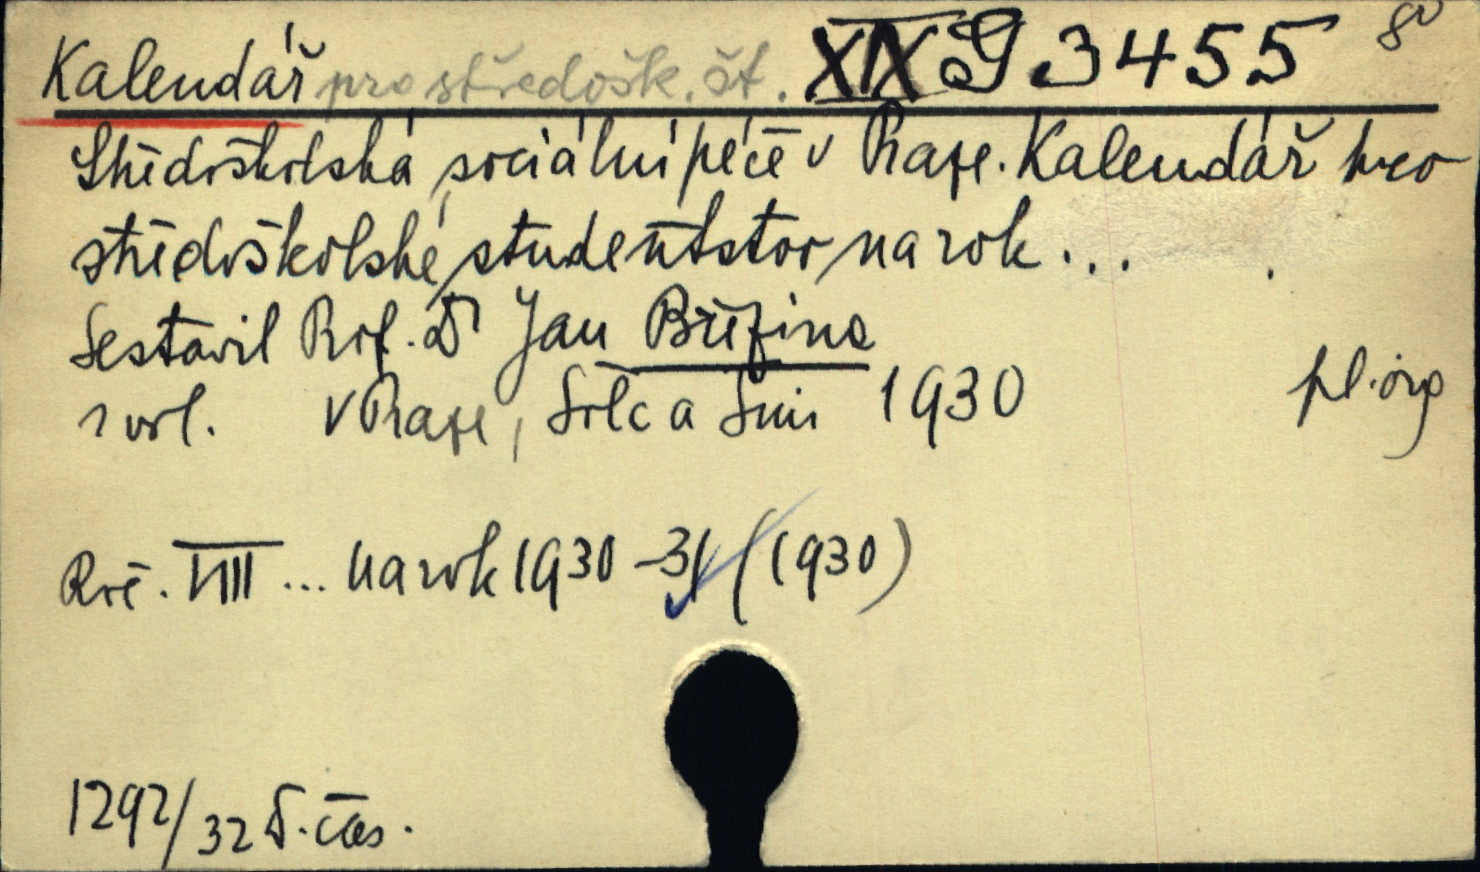 Kalendář pro středošk. št. XIX G 3455 8°
Středoškolská sociální péče v Praze. Kalendář pro
středoškolské studentstvo na rok ...
Sestavil Prof. Dr Jan Březina
1 vol. V Praze, Šolc a Šimáček 1930
Roč. VIII ... na rok 1930-31 (1930)
1292/32 D. čas.